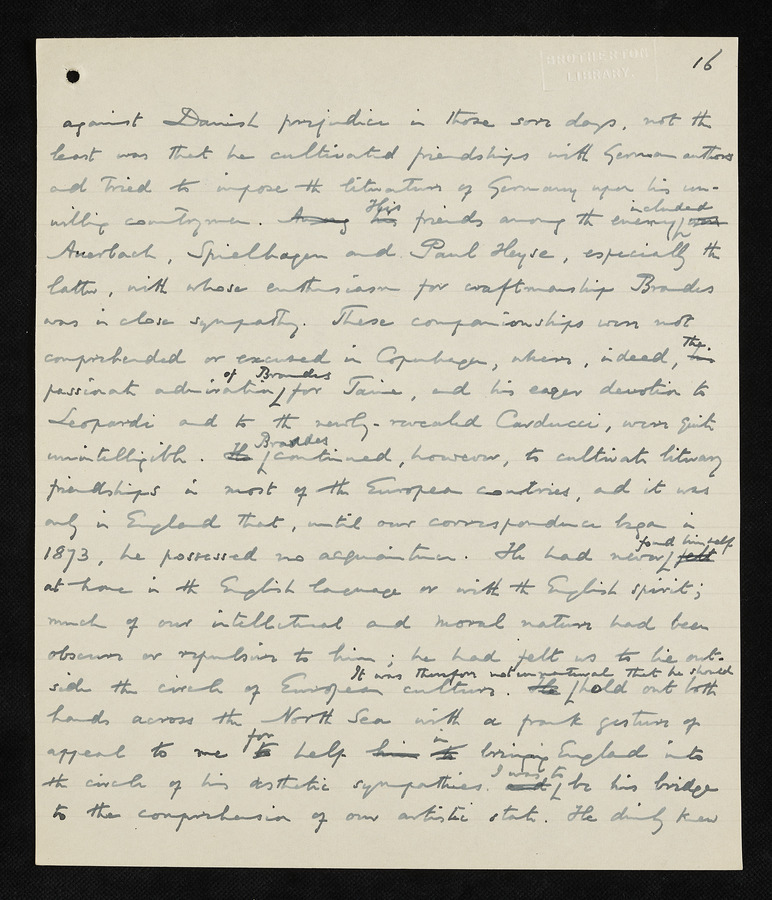 BROTHERTON
LIBRARY.
16
against Danish prejudice in those sore days, not the
least was that he cultivated friendships with German authors
and tried to impose the literature of Germany upon his un-
willing countrymen. Among his His friends among the enemy included were
Auerbach, Spielhagen and Paul Heyse, especially the
latter, with whose enthusiasm for craftmanship Brandes
was in close sympathy. These companionships were not
comprehended or excused in Copenhagen, where, indeed, his the
passionate admiration of Brandes for Taine, and his eager devotion to
Leopardi and to the newly-revealed Carducci, were quite
unintelligible. He Brandes continued, however, to cultivate literary
friendships in most of the European countries, and it was
only in England that, until our correspondence began in
1873, he possessed no acquaintance. He had never found himself felt
at home in the English language or with the English spirit;
much of our intellectual and moral nature had been
obscure or repulsive to him; he had felt us to lie out-
side the circle of European culture. He It was therefore not unnatural that he should hold out both
hands across the North Sea with a frank gesture of
appeal to me to for help him to in bringing England into
the circle of his æsthetic sympathies. and I was to be his bridge
to the comprehension of our artistic state. He dimly knew